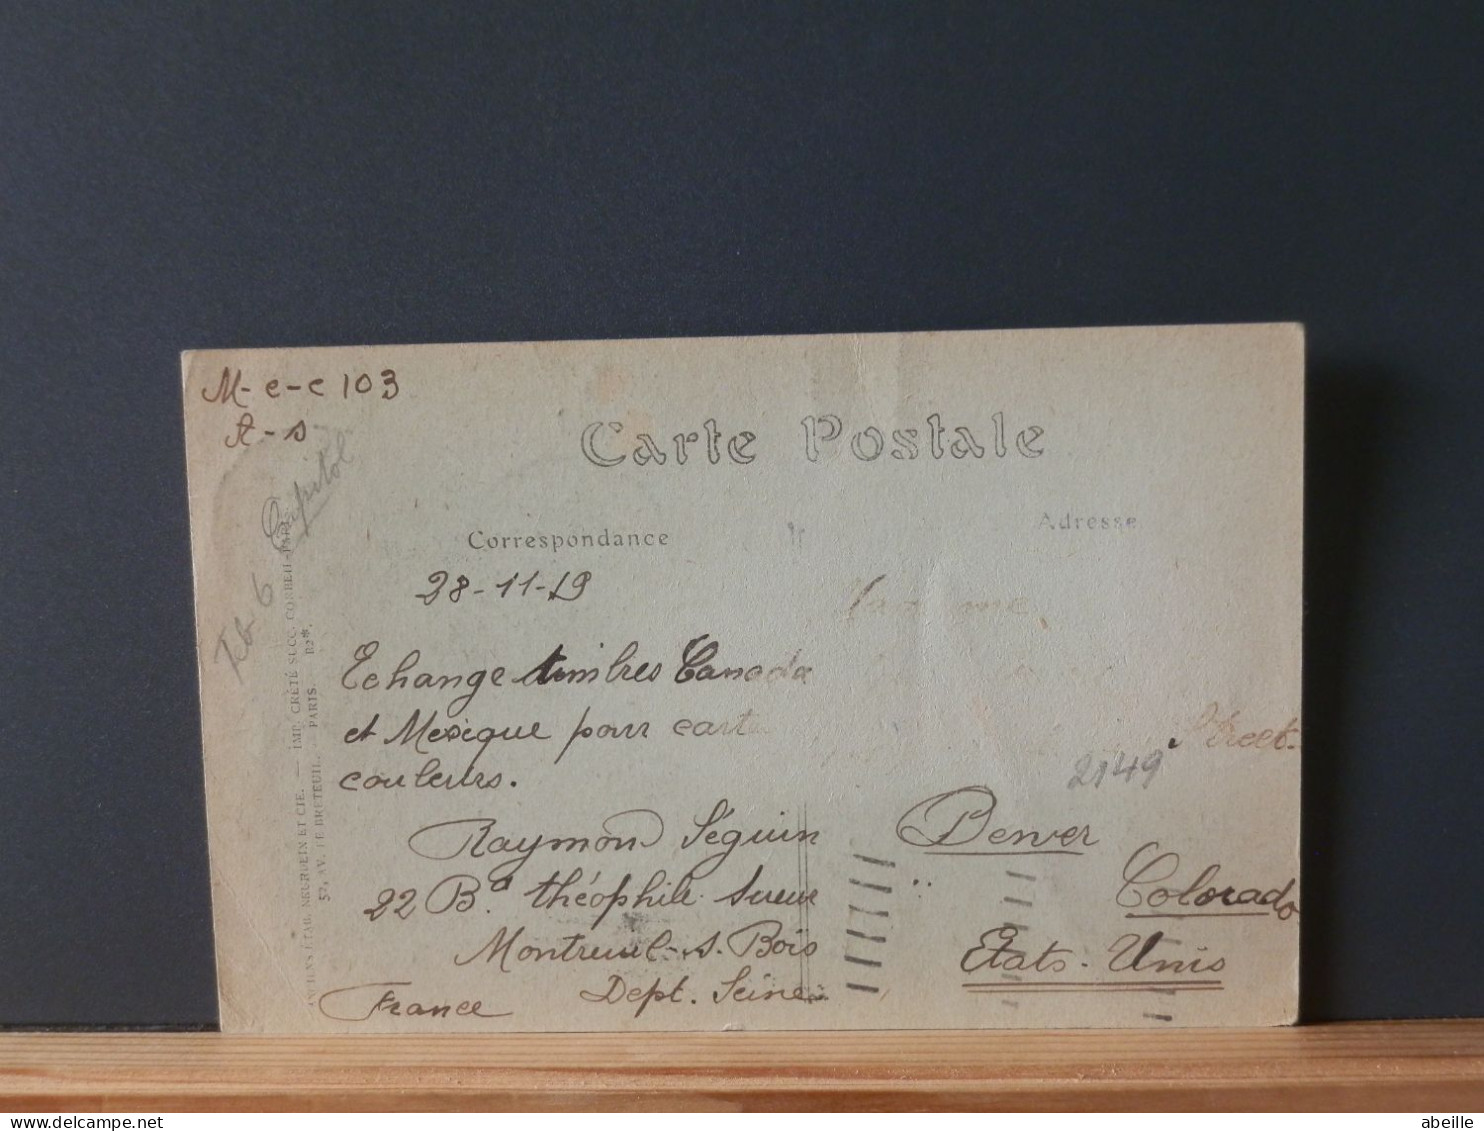 M-e-c 103
A-s
Feb 6 Capitol
Carte Postale
Correspondance
Adresse
28-11-19
Echange timbres Canada
et Mexique pour carte
couleurs.
Raymond Séguin
22 Bd. théophile Sueur
Montreuil-s.Bois
Dept. Seine
France
Street.
2149
Denver
Colorado
Etats-Unis
NEURDEIN ET CIE. — IMP. CRÉTÉ SUCC. CORBEIL-PARIS
52, AV. DE BRETEUIL. - PARIS. R2*.
abeille